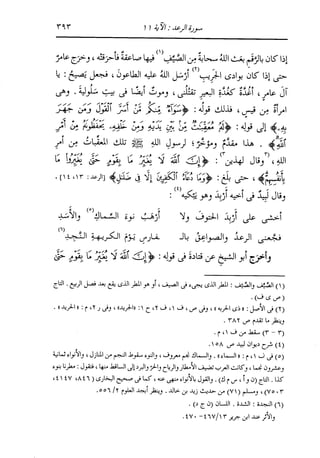 سورة الرعد : الآية ١١
٣٩٣
إذا كان بالرقم بعث اللهُ سحابةً من الصَّيِّفِ(١) فيها صاعقةٌ فأحرقته، وخرج عامرٌ
حتى إذا كان بوادى الجريبِ(٢) أرسل اللهُ عليه الطاعونَ، فجعل يَصيحُ: يا
آلَ عامرٍ، أغُدَّةٌ كغُدَّةِ البعيرِ تَقْتُلُنى، وموتٌ أيضًا فى بيتِ سَلُوليةٍ. وهى
امرأةٌ من قيسٍ، فذلك قولُه: ﴿سَوَآءٌ مِّنكُم مَّنْ أَسَرَّ ٱلْقَوْلَ وَمَن جَهَرَ
بِهِۦ﴾ إلى قوله: ﴿لَهُۥ مُعَقِّبَٰتٌ مِّنۢ بَيْنِ يَدَيْهِ وَمِنْ خَلْفِهِۦ يَحْفَظُونَهُۥ مِنْ أَمْرِ
ٱللَّهِ﴾. هذا مقدَّمٌ ومؤخَّرٌ؛ لرسولِ اللهِ ﷺ تلك المعقباتُ من أمرِ
اللهِ(٣)، وقال لهذين(٣): ﴿إِنَّ ٱللَّهَ لَا يُغَيِّرُ مَا بِقَوْمٍ حَتَّىٰ يُغَيِّرُوا۟ مَا
بِأَنفُسِهِمْ﴾، حتى بلَغ: ﴿وَمَا دُعَآءُ ٱلْكَٰفِرِينَ إِلَّا فِى ضَلَٰلٍ﴾ [الرعد: ١٣، ١٤].
وقال لبيدٌ فى أخيه أربدَ وهو يبكيه(٤):
أخشى على أربدَ الحتوفَ ولا أرهَبُ نوءَ السِّماكِ(٥) والأسدِ
فجَّعنى الرعدُ والصواعقُ بالـ ـفارسِ يومَ الكريهةِ النَّجُدِ(٦)
وأخرج أبو الشيخِ عن قتادةَ فى قولِه: ﴿إِنَّ ٱللَّهَ لَا يُغَيِّرُ مَا بِقَوْمٍ حَتَّىٰ
(١) الصَّيِّف والصَّيْف: المطر الذى يجىء فى الصيف، أو هو المطر الذى يقع بعد فصل الربيع. التاج
(ص ى ف).
(٢) فى الأصل: «ذى الحربة»
وينظر ما تقدم ص ٣٨٢.
(٣ - ٣) سقط من: ف ١، م.
(٤) شرح ديوان لبيد ص ١٥٨.
(٥) فى ف ١، م: «السماء». والسماك نجم معروف، والنوء سقوط النجم من المنازل، والأنواء ثمانية
وعشرون نجما، وكانت العرب تضيف الأمطار والرياح والحر والبرد إلى الساقط منها، فتقول: مطرنا بنوء
كذا. التاج (ن و أ، س م ك). والقول بالأنواء منهى عنه، كما فى صحيح البخارى (٨٤٦، ٤١٤٧،
٧٥٠٣)، ومسلم (٧١) من حديث زيد بن خالد. وينظر أبجد العلوم ٢/ ٥٥٦.
(٦) النجدة: الشدة. اللسان (ن ج د).
والأثر عند ابن جرير ١٣/ ٤٦٧ - ٤٧٠.